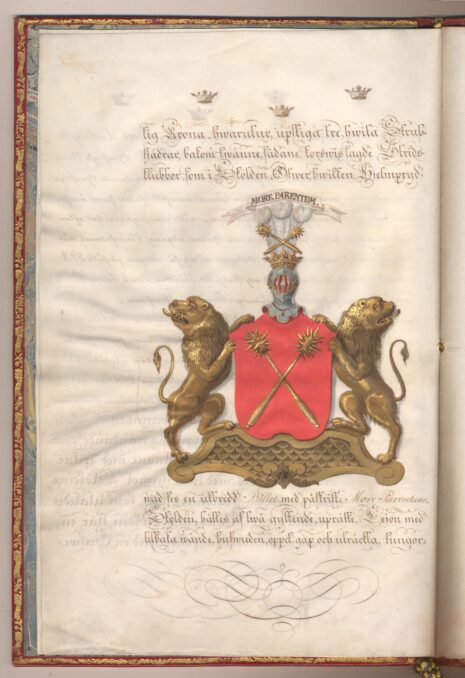 lig Krona, hwarutur, upstiga tre, hwita Struts
fjädrar, bakom twänne, sådane, korswis lagde Strids
klubbor, som i Skölden. Öfwer hwilken Hjelmpryd
MORE PARENTUM.
nad ses en utbredd Billet med påskrift. More Parentum.
Skölden, hålles af twå gyllende, upräckte, Lejon med
tilbaka wände, hufwuden, öppet gap och uträckta, tungor.